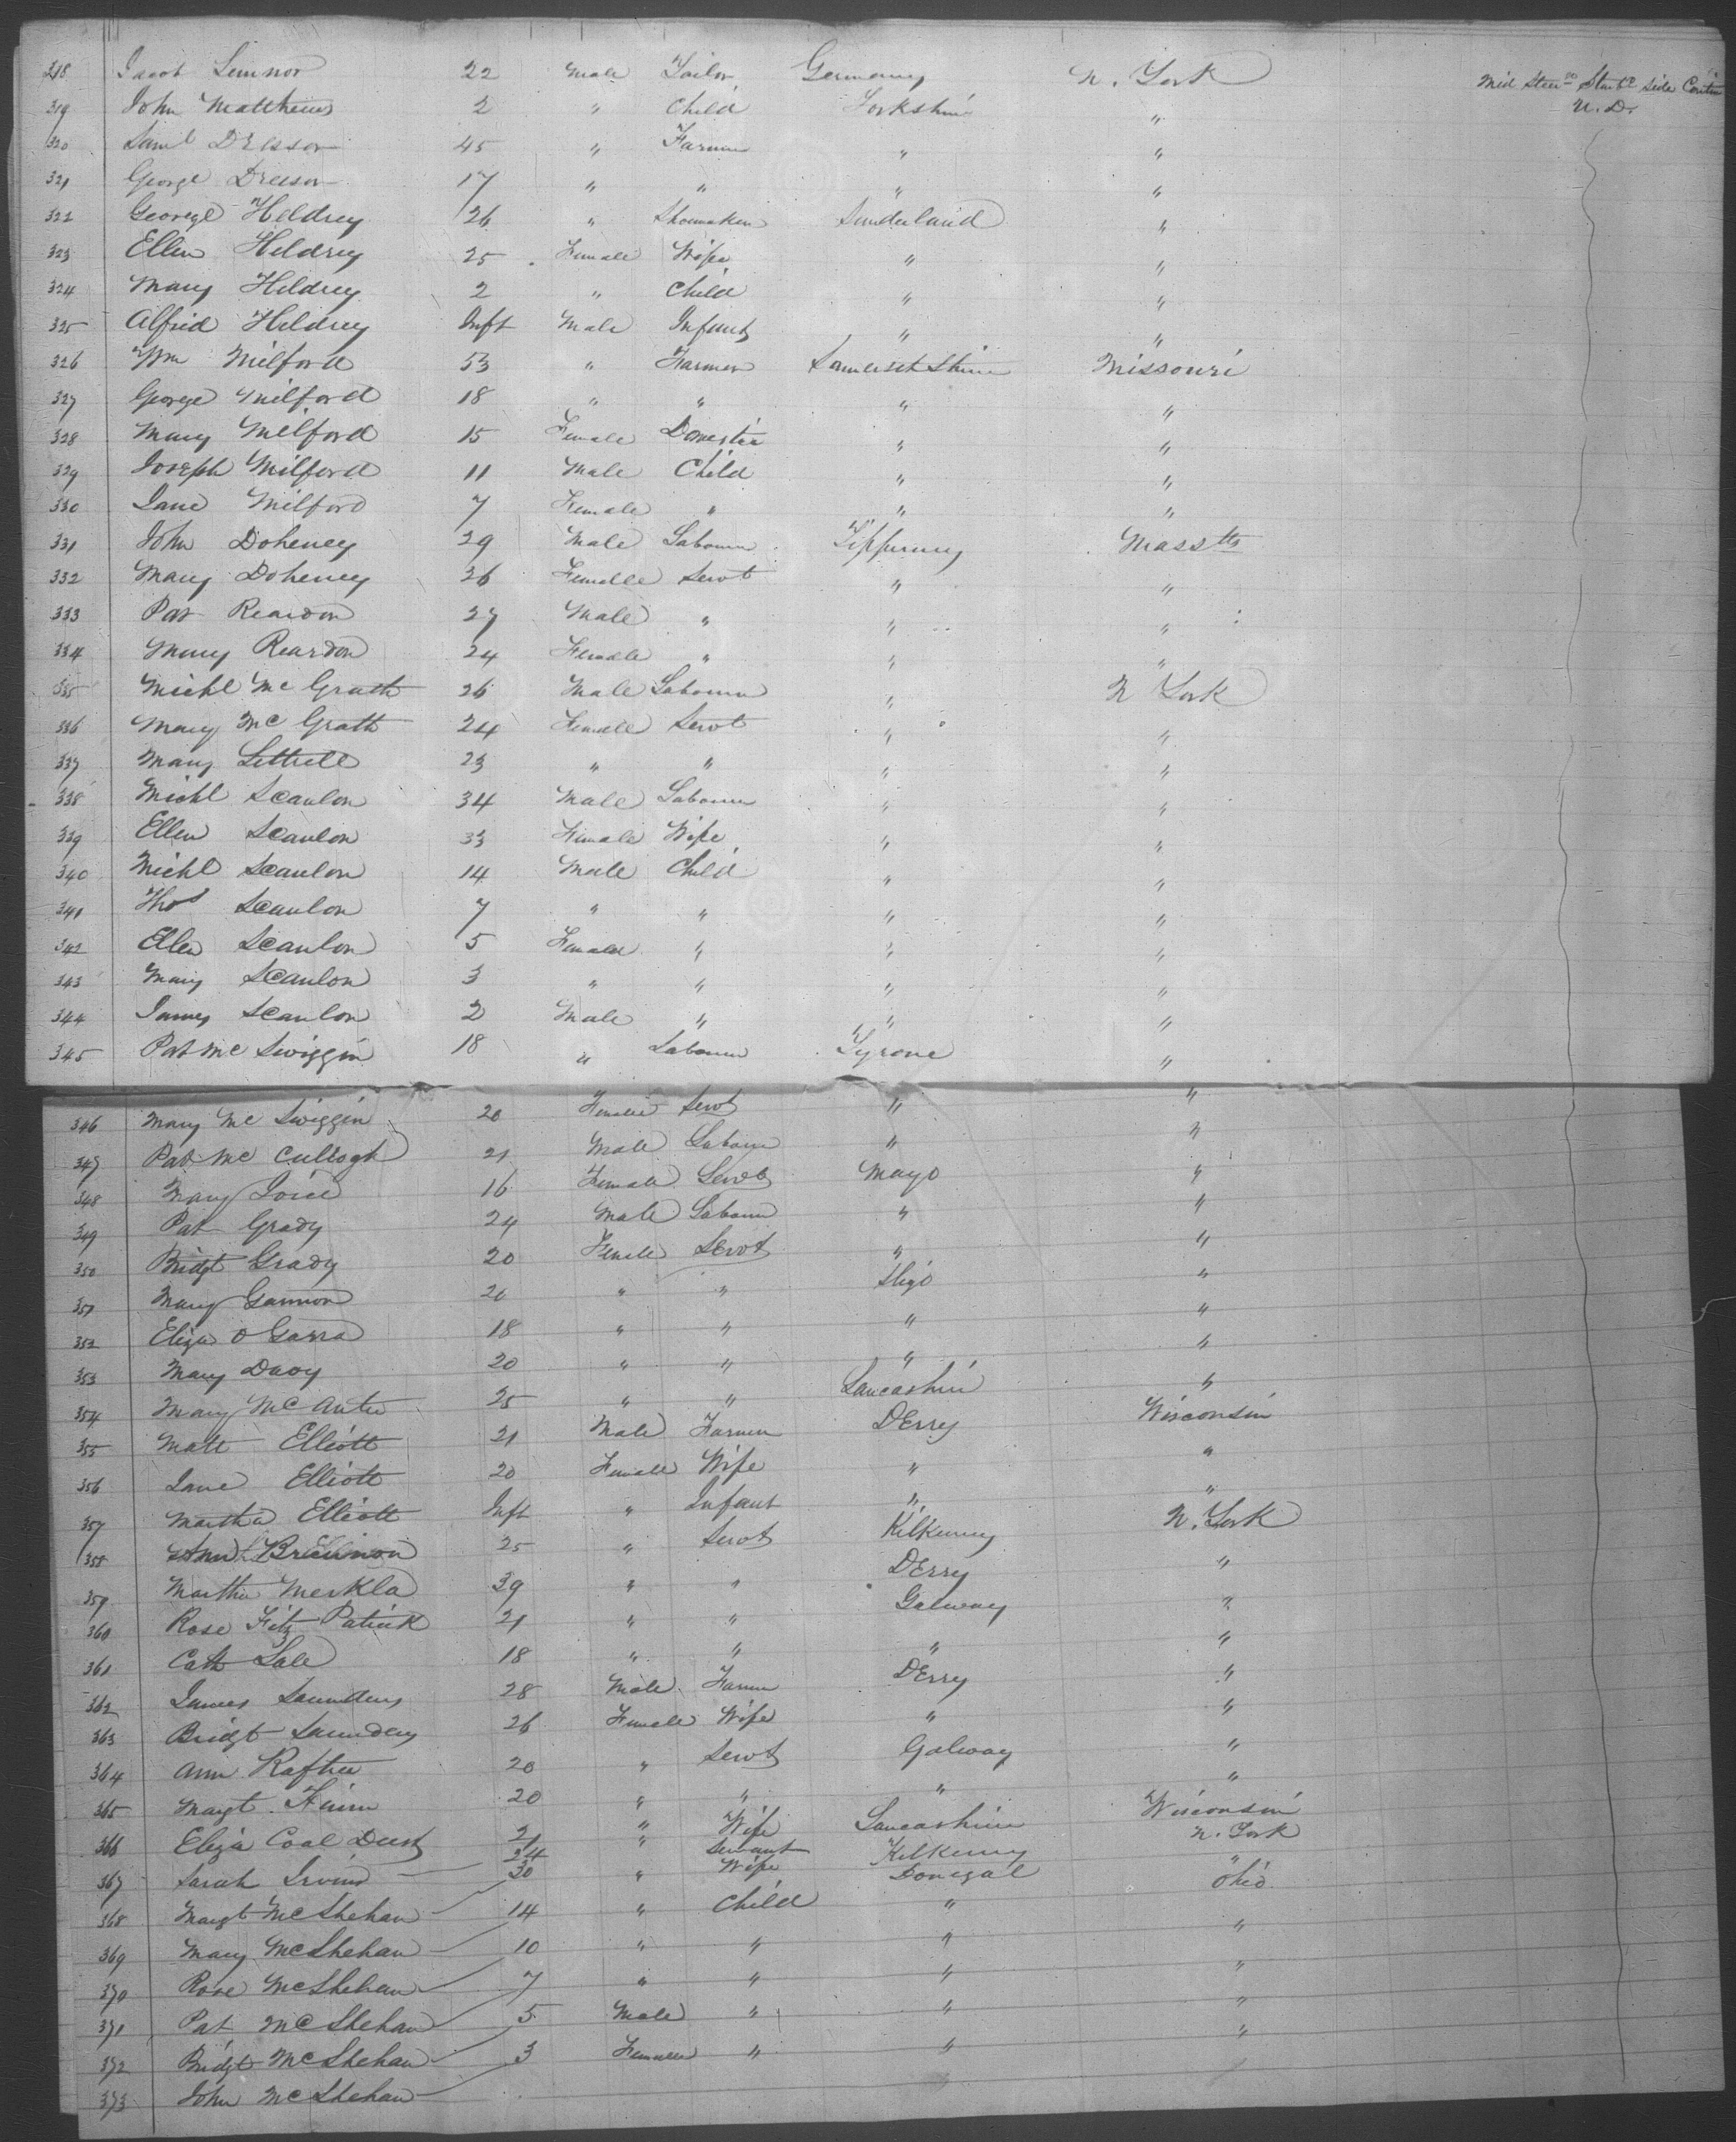 318 Jacob Simnor 22 Male Tailor Germany N. York Mid Steer Starbd side Contin
319 John Matthews 2 " Child Yorkshire " U. D.
320 Saml Dresser 45 " Farmer " "
321 George Dresser 17 " " " "
322 George Hildrey 26 " Shoemaker Sunderland "
323 Ellen Hildrey 25 Female Wife " "
324 Mary Hildrey 2 " Child " "
325 Alfred Hildrey Inft Male Infant " "
326 Wm Milford 53 " Farmer Somerset Shire Missouri
327 George Milford 18 " " " "
328 Mary Milford 15 Female Domestic " "
329 Joseph Milford 11 Male Child " "
330 Jane Milford 7 Female " " "
331 John Doheney 29 Male Labourer Tipperary Masstts
332 Mary Doheney 26 Female Servt " "
333 Pat Reardon 27 Male " " "
334 Mary Reardon 24 Female " " "
335 Michl Mc Grath 26 Male Labourer " N York
336 Mary Mc Grath 24 Female Servt " "
337 Mary Littrell 23 " " " "
338 Michl Scanlon 34 Male Labourer " "
339 Ellen Scanlon 33 Female Wife " "
340 Michl Scanlon 14 Male Child " "
341 Thos Scanlon 7 " " " "
342 Ellen Scanlon 5 Female " " "
343 Mary Scanlon 3 " " " "
344 James Scanlon 2 Male " " "
345 Pat Mc Swiggin 18 " Labourer Tyrone "
346 Mary Mc Swiggin 20 Female Servt " "
347 Pat Mc Cullogh 21 Male Labourer " "
348 Mary Joice 16 Female Servt Mayo "
349 Pat Grady 24 Male Labourer " "
350 Bridgt Grady 20 Female Servt " "
351 Mary Gannon 20 " " Sligo "
352 Eliza O Garra 18 " " " "
353 Mary Davy 20 " " " "
354 Mary Mc Anter 25 " " Lancashire "
355 Matt Elliott 21 Male Farmer Derry Wisconsin
356 Jane Elliott 20 Female Wife " "
357 Martha Elliott Inft " Infant " "
358 Ann Brennon 25 " Servt Kilkenny N. York
359 Martha Merkla 39 " " Derry "
360 Rose Fitz Patrick 21 " " Galway "
361 Cath Lale 18 " " " "
362 James Saunders 28 Male Farmer Derry "
363 Bridgt Saunders 26 Female Wife " "
364 Ann Rafter 20 " Servt Galway "
365 Margt 20 " " " "
366 Eliza Coal Dust 21 " Wife Lancashire Wisconsin
367 Sarah Irvine 24 " Servant Kilkenny N. York
368 Margt McShehan 30 " Wife Donegal " Ohio
369 Mary McShehan 14 " Child " "
370 Rose McShehan 10 " " " "
371 Pat McShehan 7 " " " "
372 Bridgt McShehan 5 Male " " "
373 John McShehan 3 Female " " "